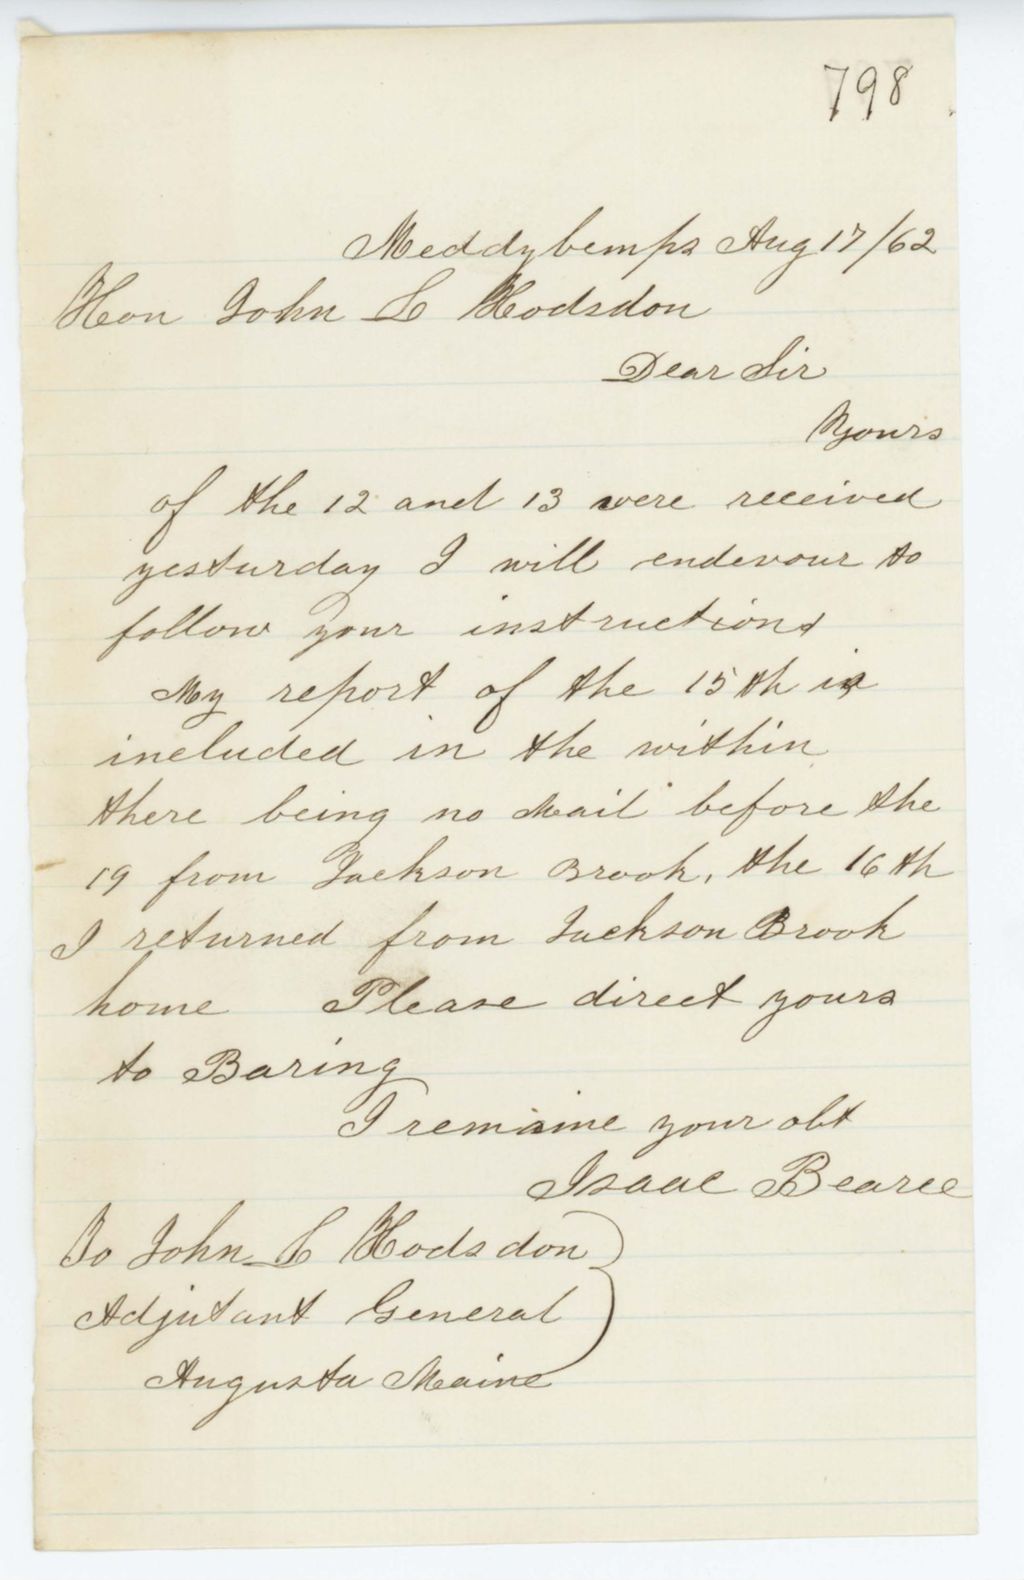 798
Meddybemps Aug 17/62
Hon John L Hodsdon
Dear Sir
Yours
of the 12 and 13 were received
yesturday I will endevour to
follow your instructions
My report of the 15th is
included in the within
there being no Mail before the
19 from Jackson Brook, the 16th
I returned from Jackson Brook
home Please direct yours
to Baring
I remaine your obt
Isaac Bearce
To John L Hodsdon
Adjutant General
Augusta Maine